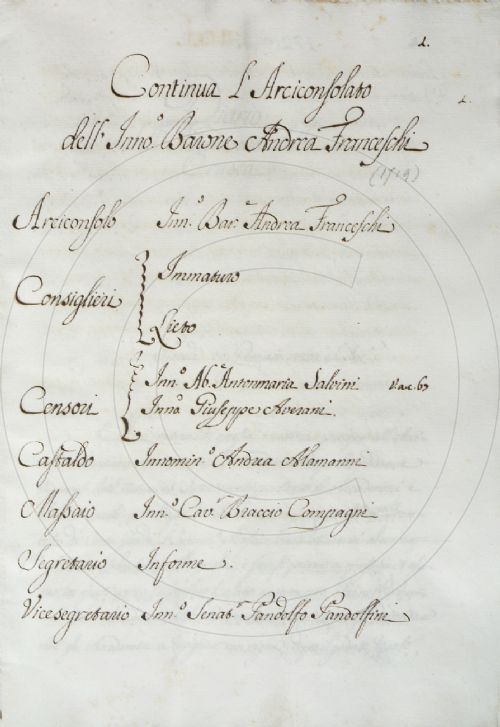 1.
Continua L'Arciconsolato
1.
dell' Inno.º Barone Andrea Franceschi
(1729)
Arciconsolo Inn.º Bar.ᵉ Andrea Franceschi
Consiglieri Immaturo
Lieto
Inn.º Ab.ᵉ Antonmaria Salvini Vac. 6
Censori Inno.º Giuseppe Averani.
Castaldo Innomin.º Andrea Alamanni
Massaio Inn.º Cav.ʳ Braccio Compagni
Segretario Informe.
Vicesegretario Inn.º Senat.ʳ Pandolfo Pandolfini